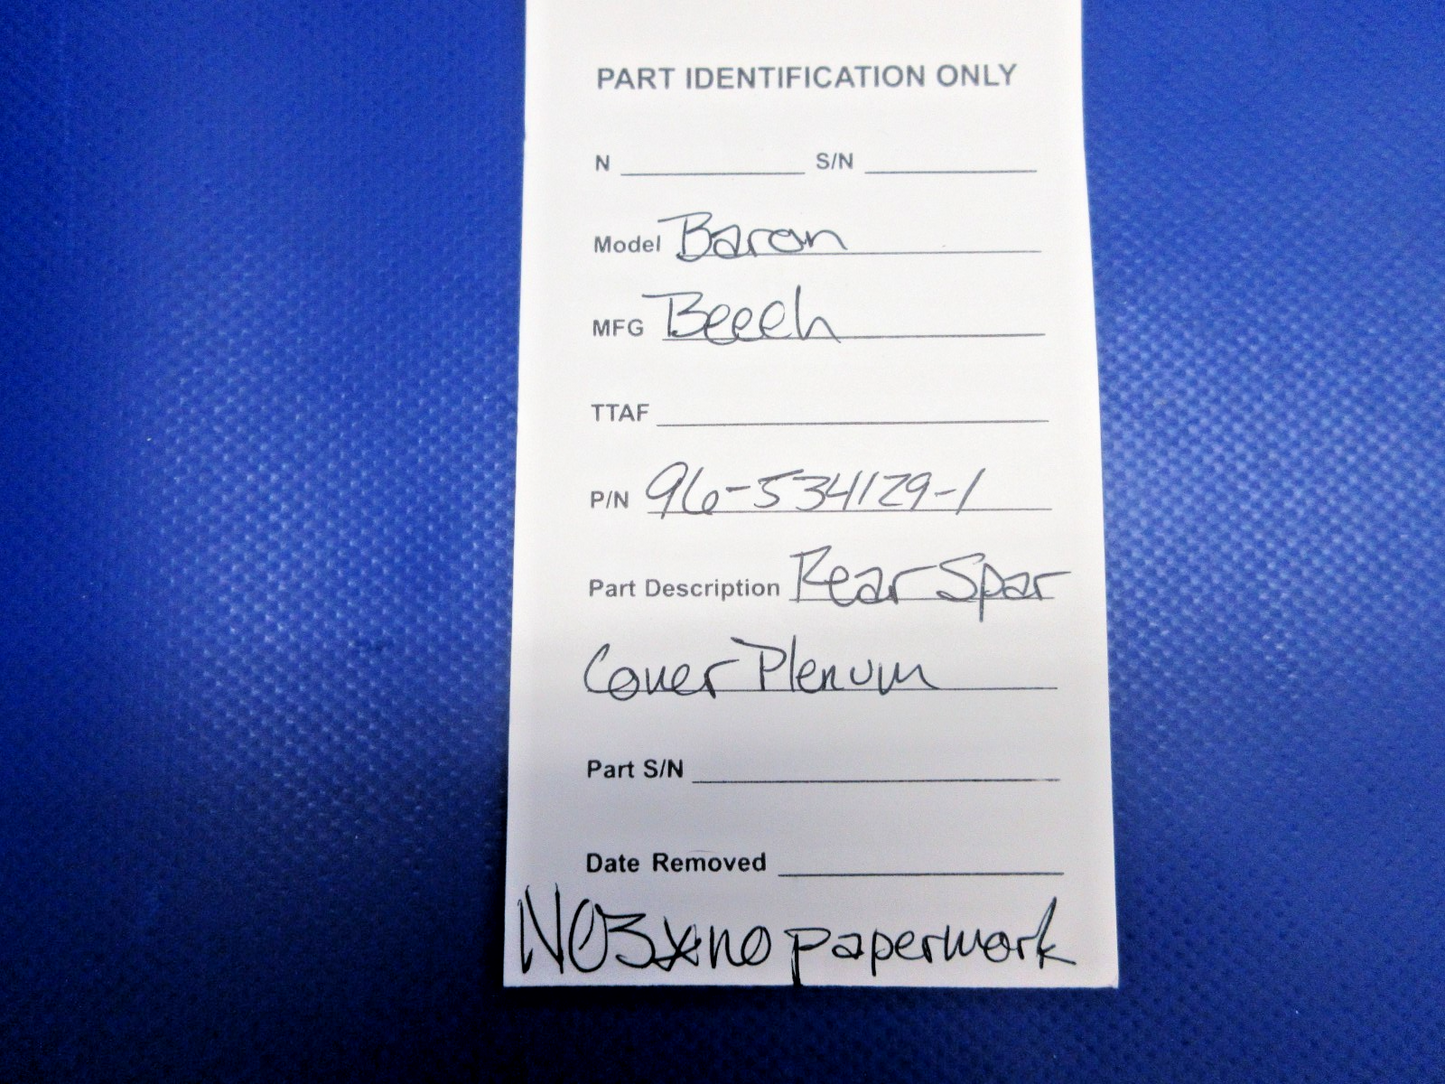 PART IDENTIFICATION ONLY
N S/N
Model Baron
MFG Beech
TTAF
P/N 96-534129-1
Part Description Rear Spar
Cover Plenum
Part S/N
Date Removed
NOS*no paperwork